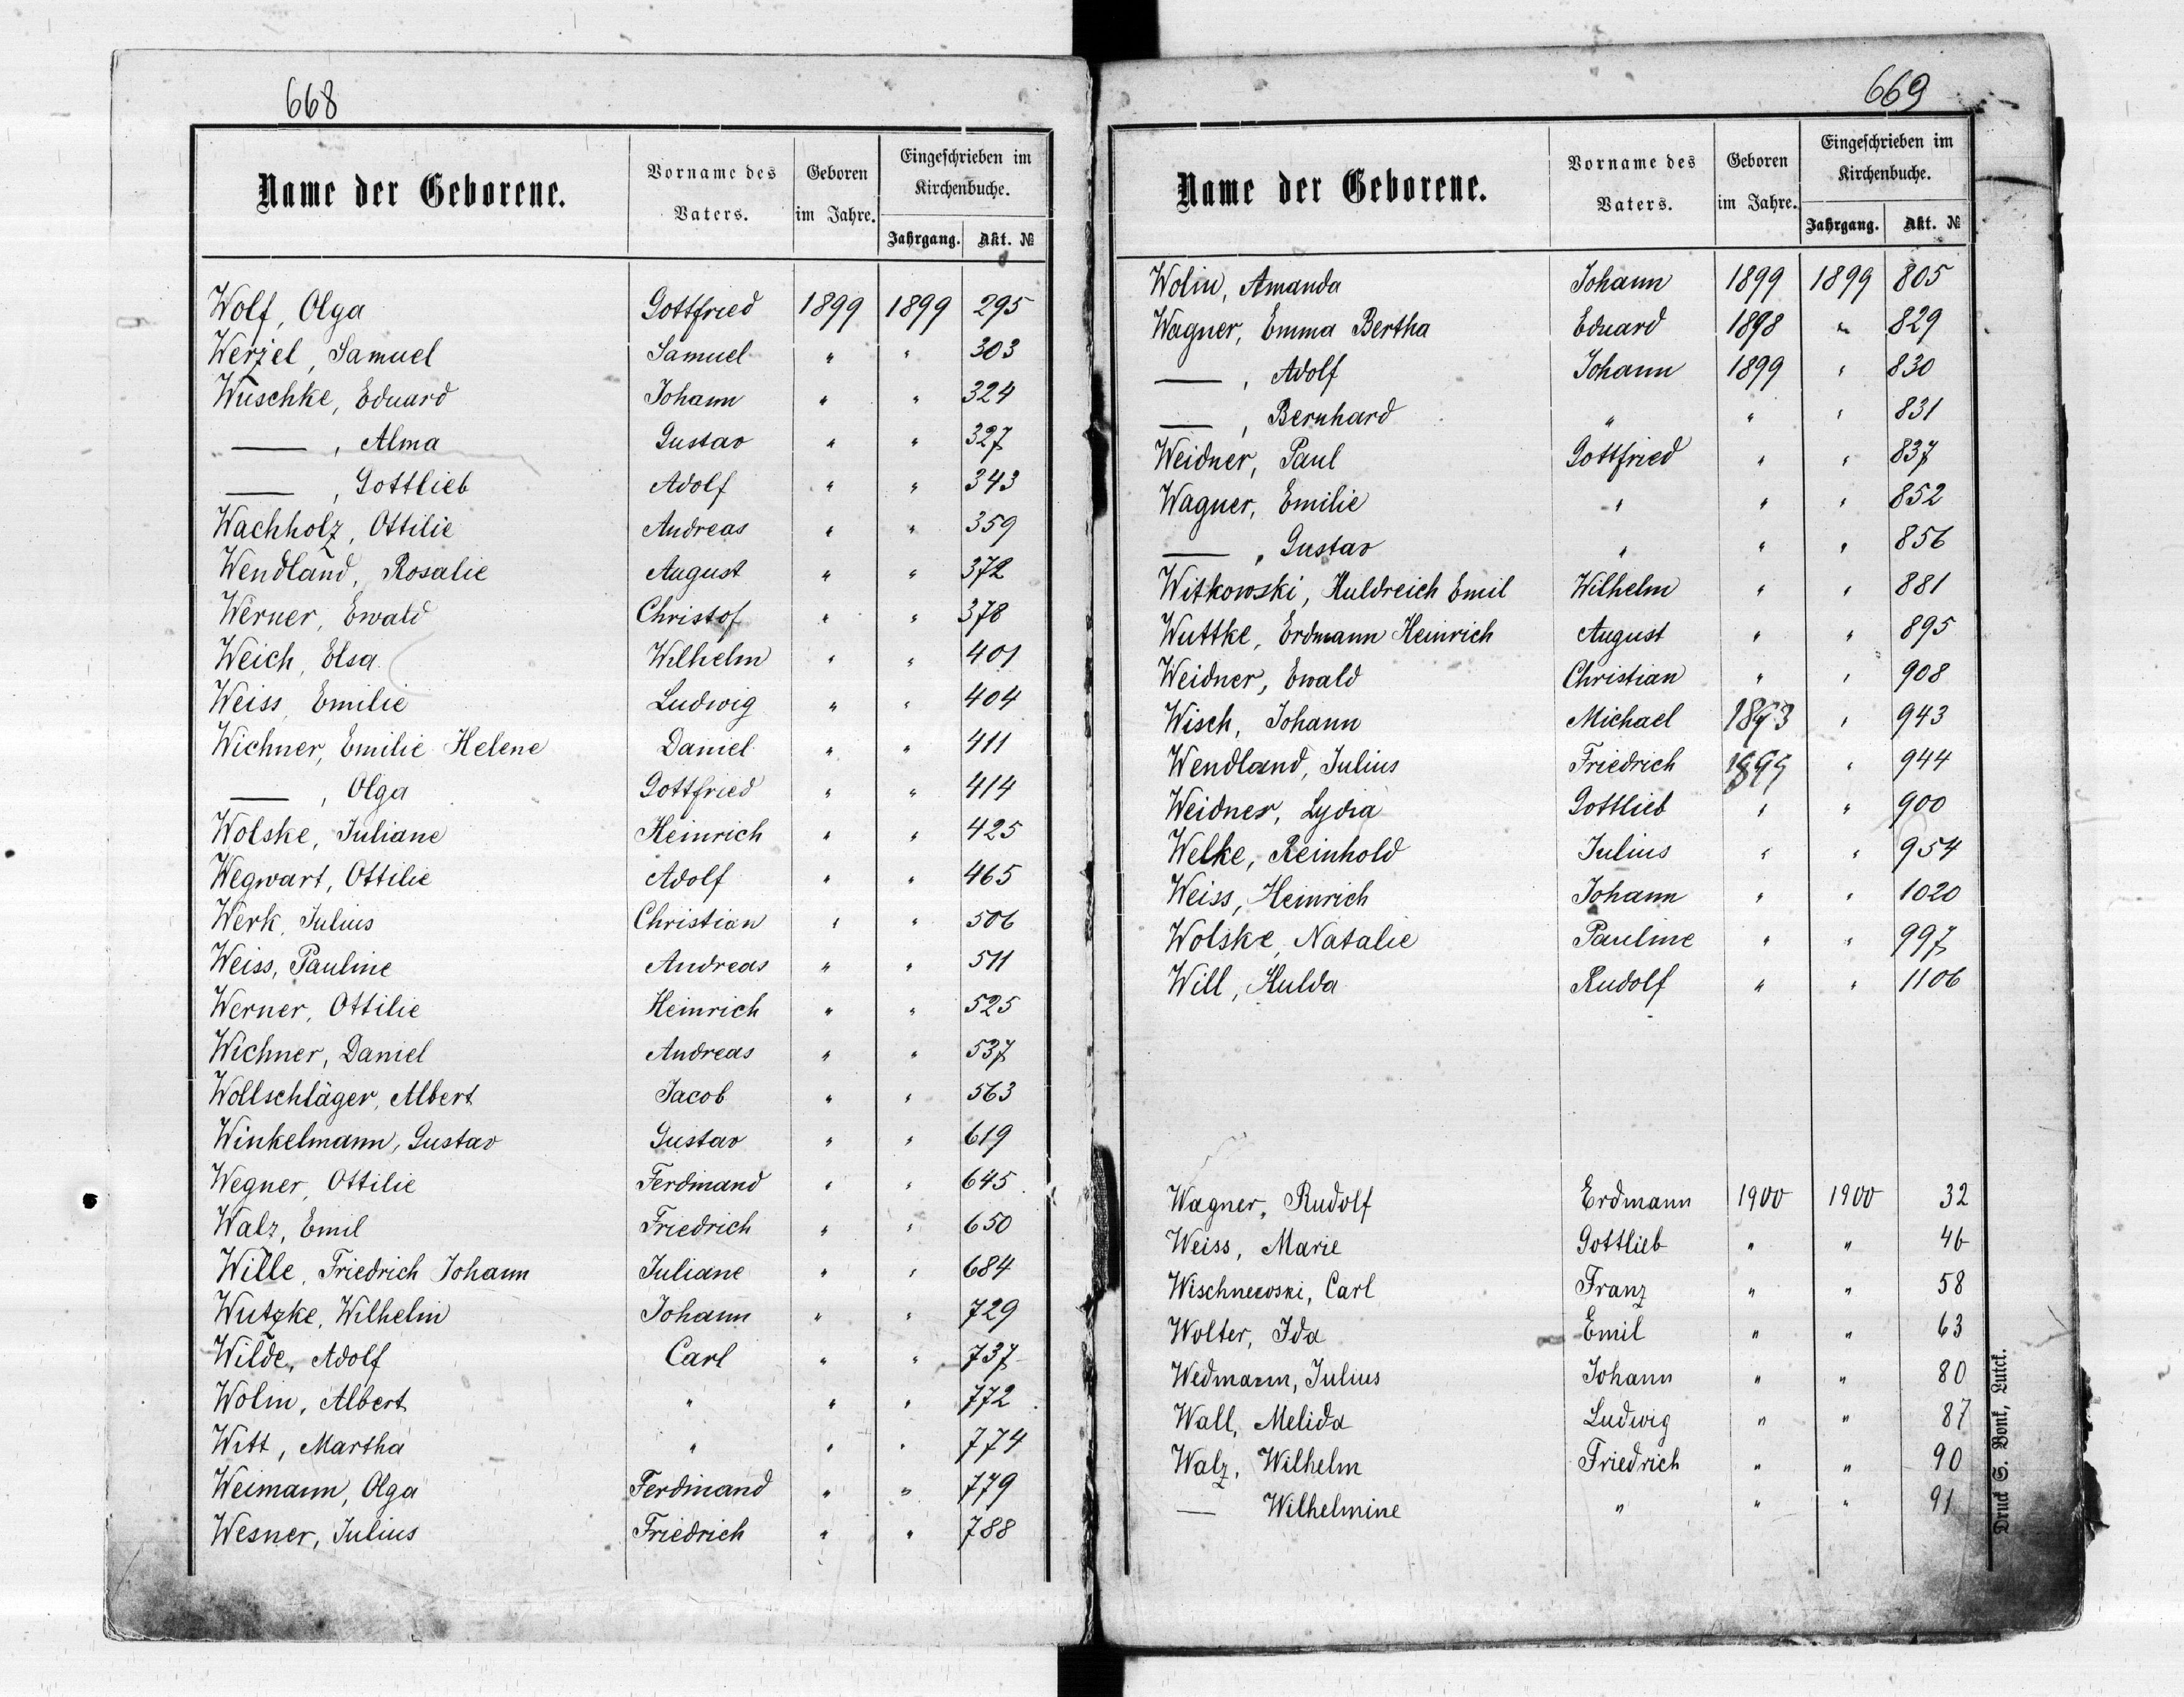 668
Name der Geborene. Vorname des Vaters. Geboren im Jahre. Eingeschrieben im Kirchenbuche. Jahrgang. Akt. №
Wolf, Olga Gottfried 1899 1899 295
Werzel, Samuel Samuel " " 303
Wuschke, Eduard Johann " " 324
—, Alma Gustav " " 327
—, Gottlieb Adolf " " 343
Wachholz, Ottilie Andreas " " 359
Wendland, Rosalie August " " 372
Werner, Ewald Christof " " 378
Weich, Elsa Wilhelm " " 401
Weiss, Emilie Ludwig " " 404
Wichner, Emilie Helene Daniel " " 411
—, Olga Gottfried " " 414
Wolske, Juliane Heinrich " " 425
Wegwart, Ottilie Adolf " " 465
Werk, Julius Christian " " 506
Weiss, Pauline Andreas " " 511
Werner, Ottilie Heinrich " " 525
Wichner, Daniel Andreas " " 537
Wollschläger, Albert Jacob " " 563
Winkelmann, Gustav Gustav " " 619
Wegner, Ottilie Ferdinand " " 645
Walz, Emil Friedrich " " 650
Wille, Friedrich Johann Juliane " " 684
Wutzke, Wilhelm Johann " " 729
Wilde, Adolf Carl " " 737
Wolin, Albert " " " 772
Witt, Martha " " " 774
Weimann, Olga Ferdinand " " 779
Wesner, Julius Friedrich " " 788
669
Name der Geborene. Vorname des Vaters. Geboren im Jahre. Eingeschrieben im Kirchenbuche. Jahrgang. Akt. №
Wolin, Amanda Johann 1899 1899 805
Wagner, Emma Bertha Eduard 1898 " 829
—, Adolf Johann 1899 " 830
—, Bernhard " " " 831
Weidner, Paul Gottfried " " 837
Wagner, Emilie " " " 852
—, Gustav " " " 856
Witkowski, Huldreich Emil Wilhelm " " 881
Wuttke, Erdmann Heinrich August " " 895
Weidner, Ewald Christian " " 908
Wisch, Johann Michael 1893 " 943
Wendland, Julius Friedrich 1899 " 944
Weidner, Lydia Gottlieb " " 900
Welke, Reinhold Julius " " 954
Weiss, Heinrich Johann " " 1020
Wolske, Natalie Pauline " " 997
Will, Hulda Rudolf " " 1106
Wagner, Rudolf Erdmann 1900 1900 32
Weiss, Marie Gottlieb " " 46
Wischnewski, Carl Franz " " 58
Wolter, Ida Emil " " 63
Wedmann, Julius Johann " " 80
Wall, Melida Ludwig " " 87
Walz, Wilhelm Friedrich " " 90
— Wilhelmine " " " 91
Druck S. Bonk, Lutck.